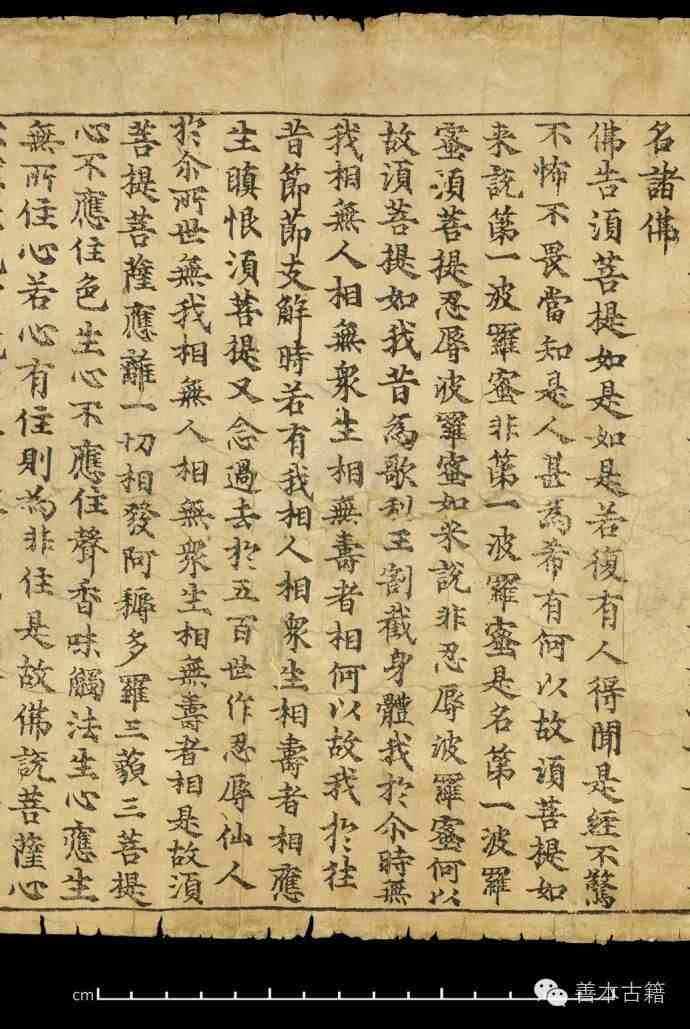 名諸佛
佛告須菩提如是如是若復有人得聞是經不驚
不怖不畏當知是人甚為希有何以故須菩提如
来說第一波羅蜜非第一波羅蜜是名第一波羅
蜜須菩提忍辱波羅蜜如来說非忍辱波羅蜜何以
故須菩提如我昔為歌利王割截身體我於尒時無
我相無人相無衆生相無壽者相何以故我於往
昔節節支解時若有我相人相衆生相壽者相應
生瞋恨須菩提又念過去於五百世作忍辱仙人
於尒所世無我相無人相無衆生相無壽者相是故須
菩提菩薩應離一切相發阿耨多羅三藐三菩提
心不應住色生心不應住聲香味觸法生心應生
無所住心若心有住則為非住是故佛說菩薩心
cm
善本古籍